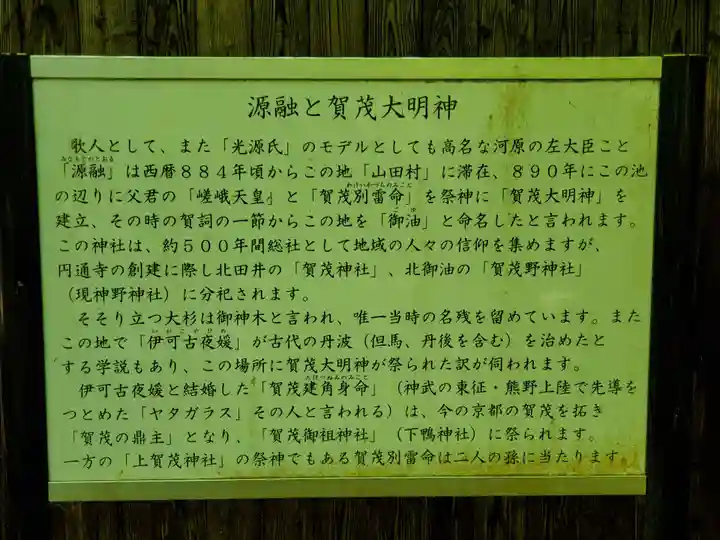 源融と賀茂大明神
歌人として、また「光源氏」のモデルとしても高名な河原の左大臣こと
「源融」は西暦８８４年頃からこの地「山田村」に滞在、８９０年にこの池
の辺りに父君の「嵯峨天皇」と「賀茂別雷命」を祭神に「賀茂大明神」を
建立、その時の賀詞の一節からこの地を「御油」と命名したと言われます。
この神社は、約５００年間総社として地域の人々の信仰を集めますが、
円通寺の創建に際し北田井の「賀茂神社」、北御油の「賀茂野神社」
（現神野神社）に分祀されます。
そそり立つ大杉は御神木と言われ、唯一当時の名残を留めています。また
この地で「伊可古夜媛」が古代の丹波（但馬、丹後を含む）を治めたと
する学説もあり、この場所に賀茂大明神が祭られた訳が伺われます。
伊可古夜媛と結婚した「賀茂建角身命」（神武の東征・熊野上陸で先導を
つとめた「ヤタガラス」その人と言われる）は、今の京都の賀茂を拓き
「賀茂の鼎主」となり、「賀茂御祖神社」（下鴨神社）に祭られます。
一方の「上賀茂神社」の祭神でもある賀茂別雷命は二人の孫に当たります。